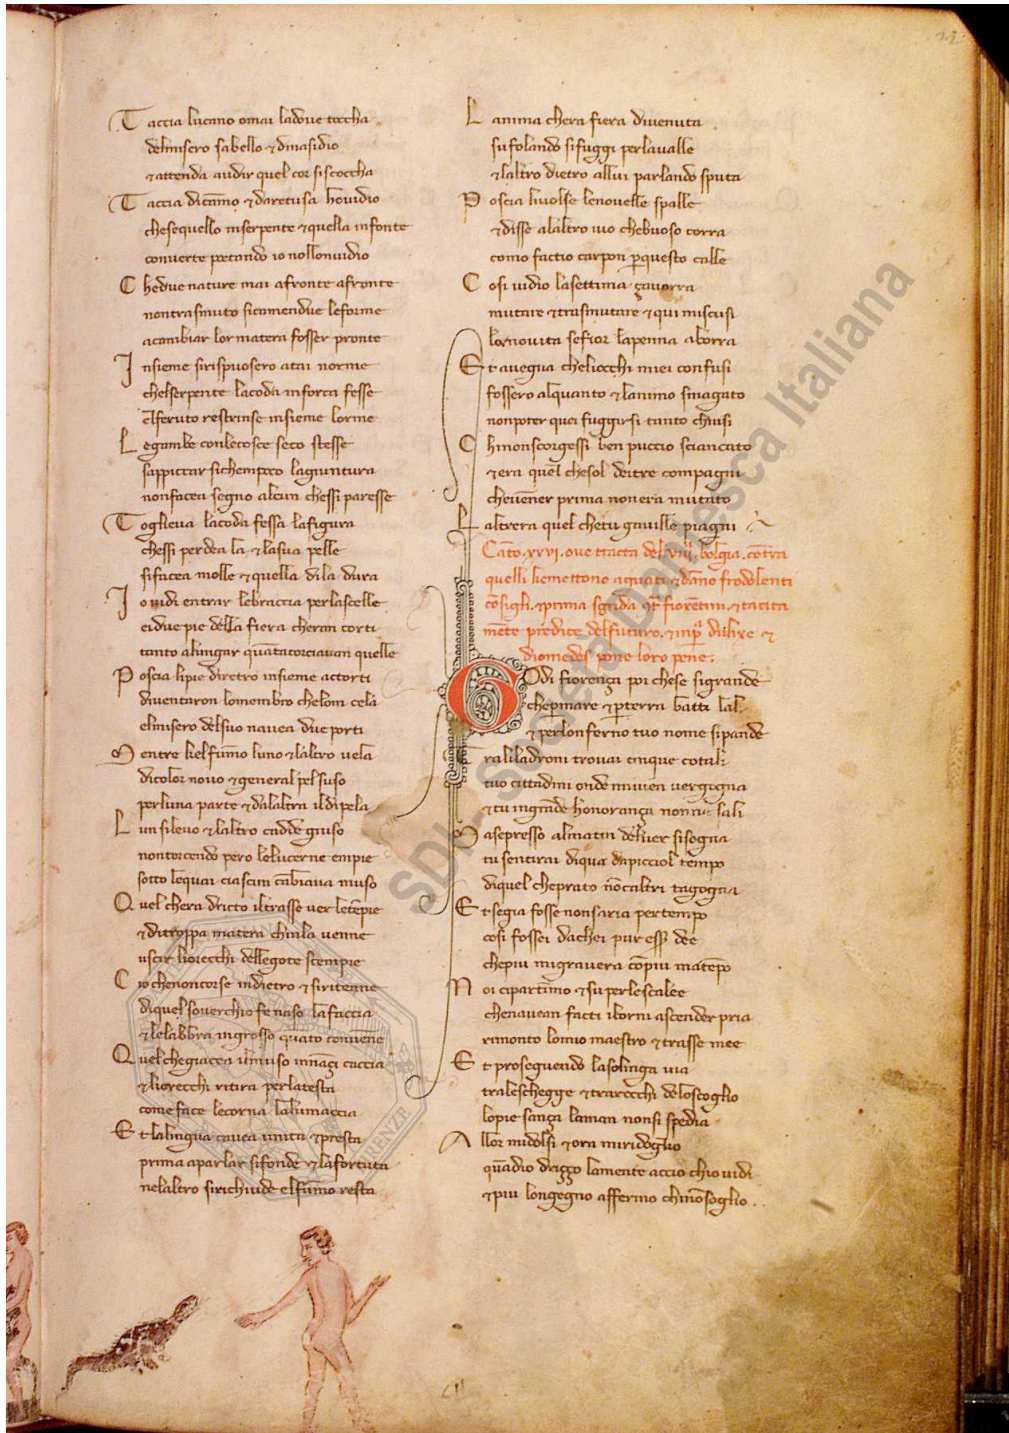 Taccia lucano omai ladove toccha
delmisero sabello & dinasidio
& attenda audir quel cor siscoccha
Taccia dicamo & daretusa hovidio
chesequello inserpente & quella infonte
converte poetando io nollonvidio
Chedue nature mai afronte afronte
nontrasmuto sicamendue leforme
acambiar lor matera fosser pronte
Insieme sirispuosero atai norme
chelserpente lacoda inforca fesse
elferuto restrinse insieme lorme
Legambe conlecosce seco stesse
sappiccar sichempoco lagiuntura
nonfacea segno alcun chessi paresse
Toglieva lacoda fessa lafigura
chessi perdea la & lasua pelle
sifacea molle & quella dila dura
Io vidi entrar lebraccia perlascelle
eidue pie della fiera cheran corti
tanto alungar quatacorciavan quelle
Poscia lipie diretro insieme actorti
diventaron lomembro chelom cela
elmisero delsuo navea due porti
Mentre kelfummo luno & laltro vela
dicolor novo & general pelsuso
perluna parte & dalaltra ildipela
Lun silevo & laltro cadde giuso
nontorcendo pero lelucerne empie
sotto lequai ciascun cambiava muso
Quel chera dricto iltrasse ver letempie
& ditroppa matera chinla venne
uscir liorecchi dellegote scempie
Cio chenoncorse indietro & siritenne
diquel soverchio fe naso lafaccia
& lelabbra ingrosso quato convenne
Quel chegiacea ilmuso innaçi caccia
& liorecchi ritira perlatesta
come face lecorna lalumaccia
Et lalingua cavea unita & presta
prima aparlar sifonde & lafortuta
nelaltro sirichiude elfummo resta
Lanima chera fiera divenuta
sufolando sifuggi perlavalle
& laltro dietro allui parlando sputa
Poscia livolse lenovelle spalle
& disse alaltro ivo chebuoso corra
como factio carpon perquesto calle
Cosi vidio lasettima çavorra
mutare & trasmutare & qui miscusi
lanovita sefior lapenna aborra
Et avegna cheliocchi miei confusi
fossero alquanto & lanimo smagato
nonpoter quei fuggirsi tanto chiusi
Chinonscorgessi ben puccio sciancato
& era quel chesol deitre compagni
chevenner prima nonera mutato
Laltrera quel chetu gaville piagni
Canto .xxvi. ove tracta del viii. bolgia. contra
quelli kemettono aguati & danno frodolenti
consigli. & prima sgrida contra fiorentini. & tacita
mente predice delfuturo. & inpersona dulixe &
diomedes pone loro pene.
Godi fiorença poi chese sigrande
che permare & perterra batti lali
& perlonferno tuo nome sipande
Traliladroni trovai cinque cotali
tuo cittadini onde miven vergogna
& tu ingrande honorança nonne sali
Ma sepresso almatin delver sisogna
tu sentirai diqua dapicciol tempo
diquel cheprato noncaltri tagogna
Et segia fosse nonsaria pertempo
cosi fossei dachei pur esser dee
chepiu migravera compiu matempo
Noi cipartimmo & su perlescalee
chenavean facti iborni ascender pria
rimonto lomio maestro & trasse mee
Et proseguendo lasolinga via
traleschegge & trarocchi deloscoglio
lopie sança laman nonsi spedia
Allor midolsi & ora miridoglio
quandio driçço lamente accio chiovidi
& piu longegno affreno chinonsoglio
SDI - Società Dantesca Italiana